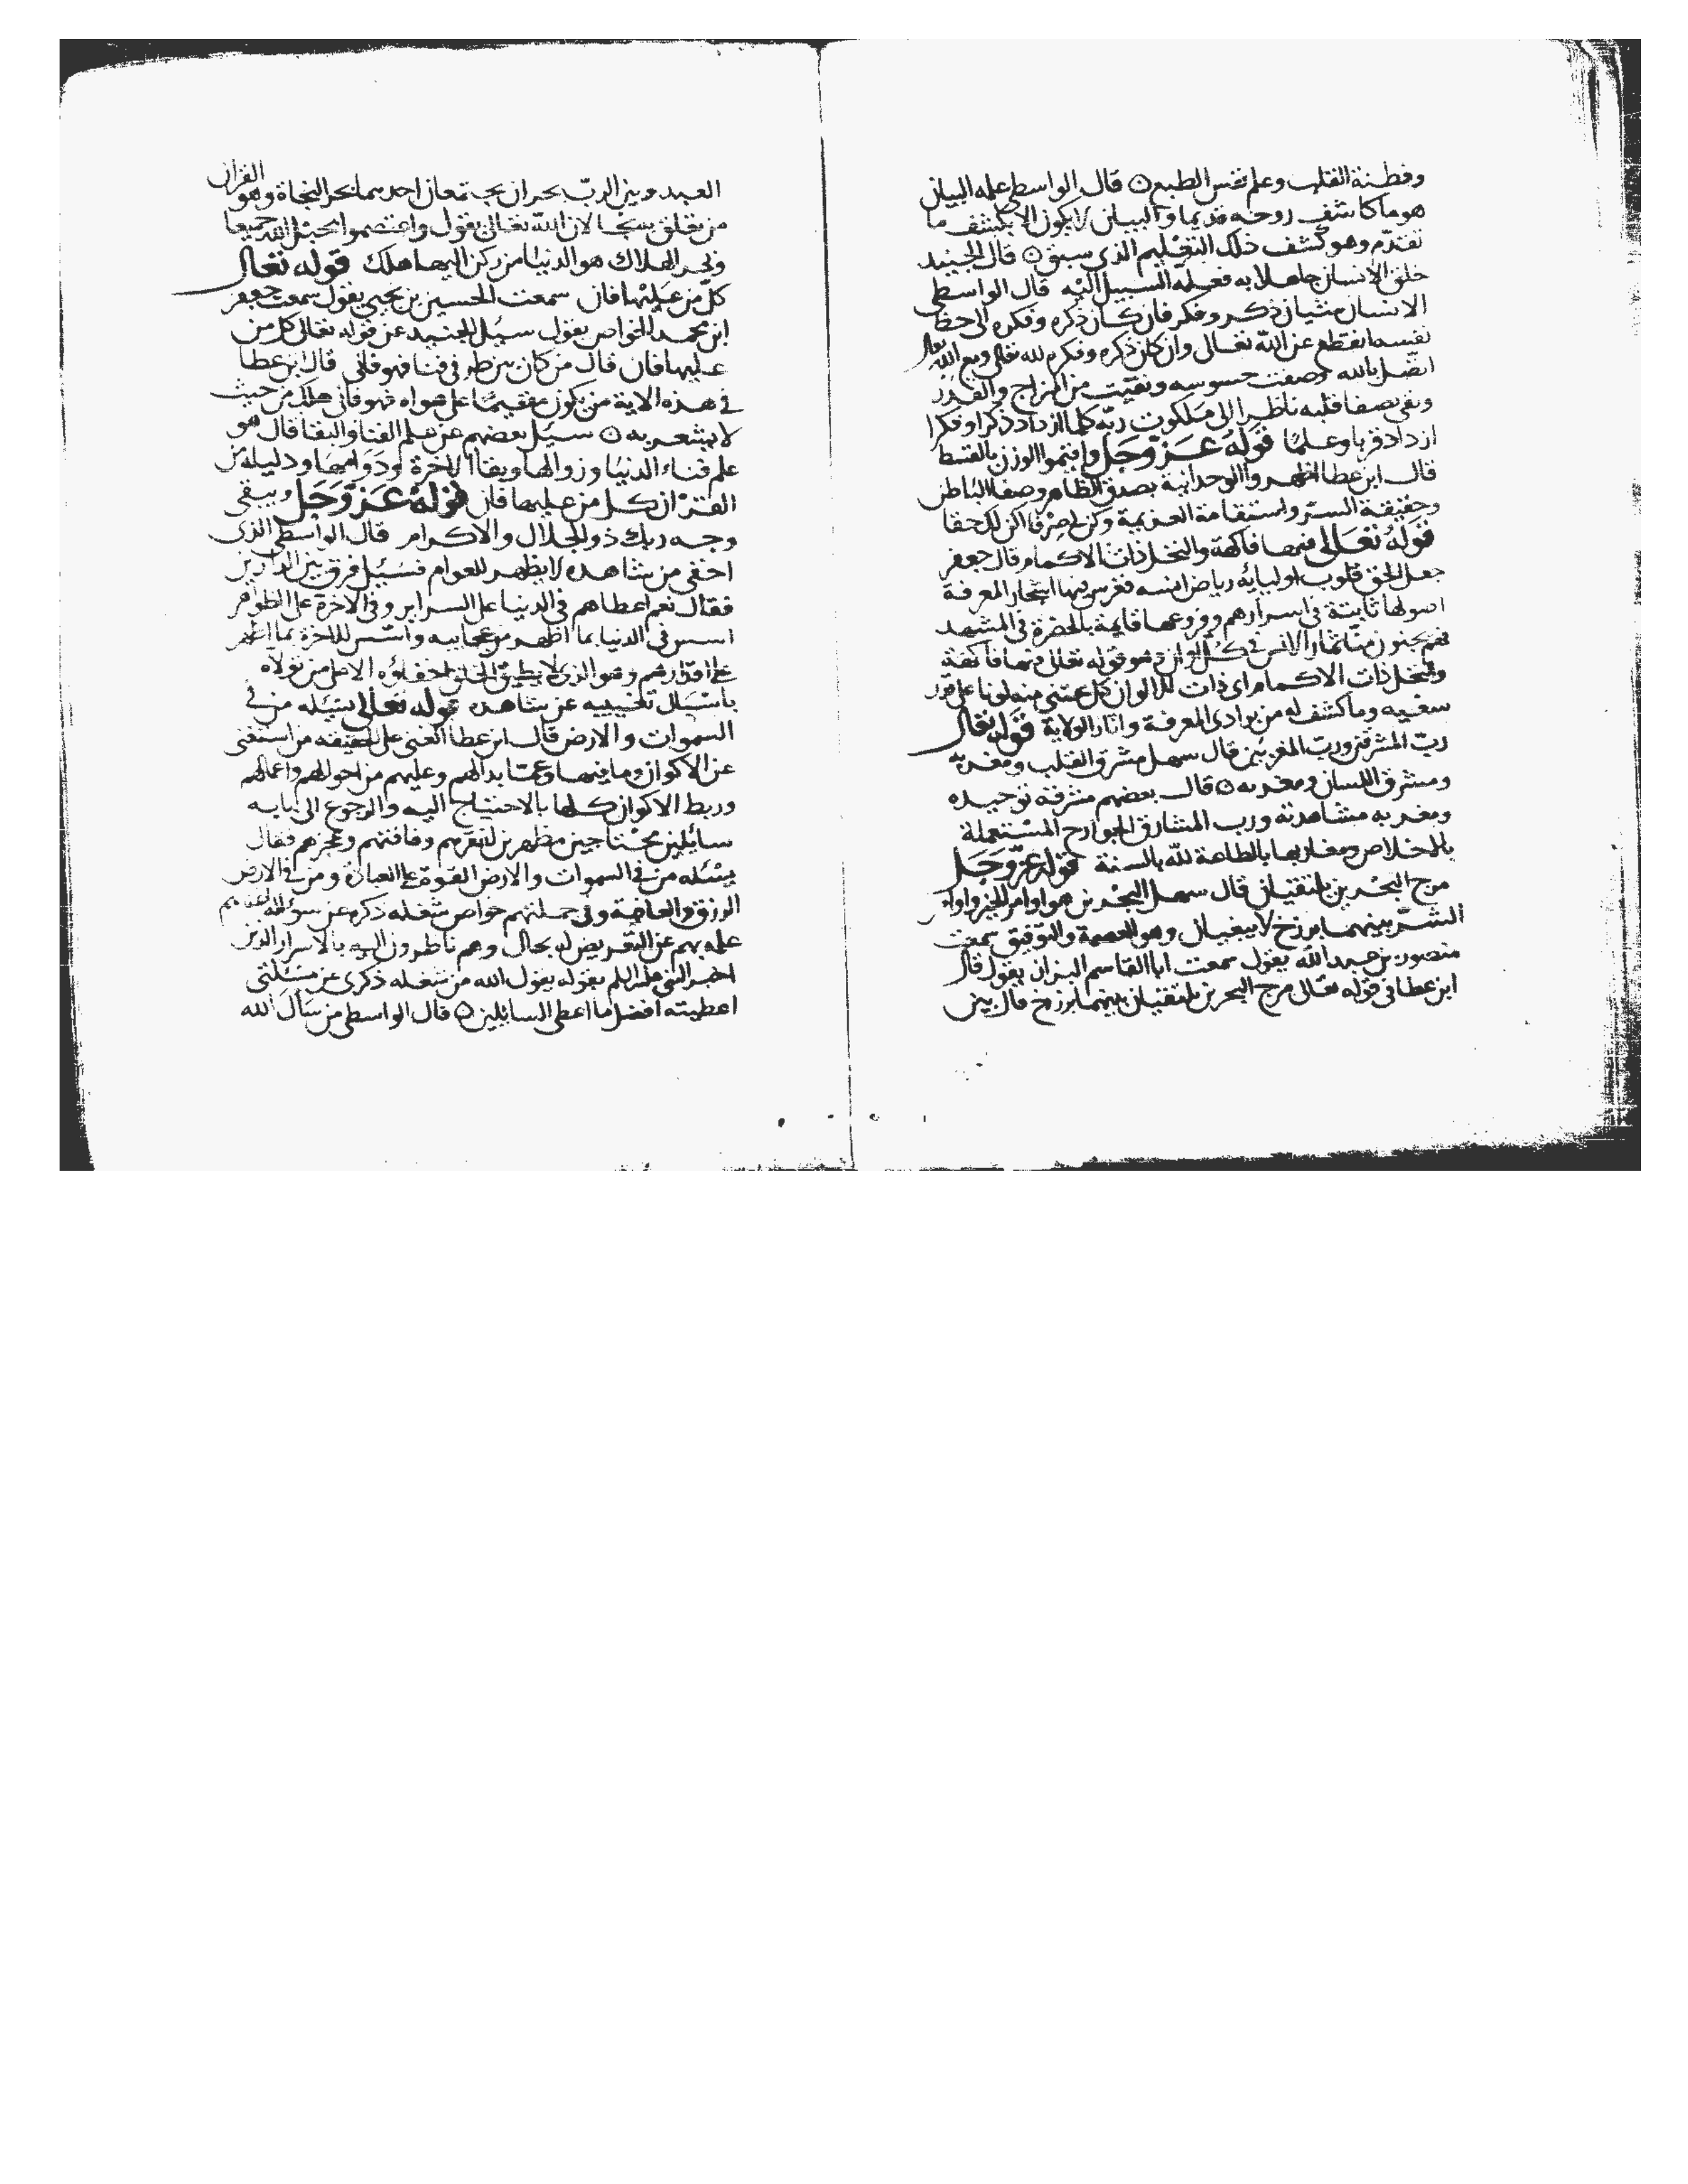 وفطنة القلب وعلم نفس الطبع ۝ قال الواسطى علمه البيان
هو ما كاشف روحه قديما والبيان لا يكون الا بكشف ما
تقدم وهو كشف ذلك التعليم الذى سبق ۝ قال الجنيد
خلق الانسان جاهلا به فعلمه السبيل اليه قال الواسطى
الانسان منثيان ذكر وفكر فان كان ذكره وفكره الى حظ
نفسه انقطع عن الله تعالى وان كان ذكره وفكره لله تعالى ومع الله تعالى
اتصل بالله وصفت حسوسه ونقيت من المزاج والقدر
وبقى بصفا قلبه ناظرا الى ملكوت ربه كلما ازداد ذكرا وفكرا
ازداد قربا وعلما قوله عز وجل واقيموا الوزن بالقسط
قال ابن عطا اظهروا الوحدانية بصدق الظاهر وصفا الباطن
وحقيقة السر واستقامة العزيمة وكن لى صرفا اكن لك حقا
قوله تعالى فيها فاكهة والنخل ذات الاكمام قال جعفر
جعل الحق قلوب اوليايه رياض انسه فغرس فيها اشجار المعرفة
اصولها ثابتة فى اسرارهم وفروعها قايمة بالحضرة فى المشهد
فهم يجنون منها ثمار الانس فى كل اوان وهو قوله تعالى فيها فاكهة
والنخل ذات الاكمام اى ذات الالوان كل يجتنى منه لونا على قدر
سعيه وما كشف له من بوادى المعرفة واثار الولاية قوله تعالى
رب المشرقين ورب المغربين قال سهل مشرق القلب ومغربه
ومشرق اللسان ومغربه ۝ قال بعضهم مشرقة توحيده
ومغربه مشاهدته ورب المشارق الجوارح المستعملة
بالاخلاص ومغاربها بالطاعة لله بالسنة قوله عز وجل
مرج البحرين يلتقيان قال سهل البحرين هو اوامر الخير واوامر
الشر بينهما برزخ لا يبغيان وهو العصمة والتوفيق سمعت
منصور بن عبد الله يقول سمعت ابا القاسم البزان يقول قال
ابن عطا فى قوله تعالى مرج البحرين يلتقيان بينهما برزخ قال بين
العبد وبين الرب بحران يجتمعان احدهما بحر النجاة وهو القران
من تعلق به نجا لان الله تعالى يقول واعتصموا بحبل الله جميعا
وبحر الهلاك هو الدنيا من ركن اليها هلك قوله تعالى
كل من عليها فان سمعت الحسين بن يحيى يقول سمعت جعفر
ابن محمد الخواص يقول سيل الجنيد عن قوله تعالى كل من
عليها فان قال من كان بين طرفى فنا فهو فانى قال ابن عطا
فى هذه الاية من يكون مقيما على هواه فهو فانى هلك من حيث
لا يشعر به ۝ سيل بعضهم عن علم الفنا والبقا قال هو
علم فناء الدنيا وزوالها وبقا الاخرة ودوامها ودليله من
القران كل من عليها فان قوله عز وجل ويبقى
وجه ربك ذو الجلال والاكرام قال الواسطى الذى
اخفى من شاهده لا يظهر للعوام فسيل فرق بين الدارين
فقال نعم اعطاهم فى الدنيا على السراير وفى الاخرة على الظواهر
اسس فى الدنيا بما اظهر من عجايبه واسس للاخرة بما اظهر
على اقدارهم وهو الذى لا يطيق الخلق اخفاؤه الا من تولاه
باسبال تغييبه عن شاهده قوله تعالى يسئله من فى
السموات والارض قال ابن عطا الغنى على الحقيقه من استغنى
عن الاكوان وما فيها وعما بدا لهم وعليهم من احوالهم واعمالهم
وربط الاكوان كلها بالاحتياج اليه والرجوع الى بابه
سائلين محتاجين مظهرين لفقرهم وفاقتهم وعجزهم فقال
يسئله من فى السموات والارض القوة على العبادة ومن فى الارض
الرزق والعافية وفى جملتهم خواص شغله ذكره عن سوالهم
علمه بهم عن التعريض له بحال وهم ناظرون اليه بالاسرار الذين
اخبر النبى صلى الله عليه وسلم بقوله يقول الله من شغله ذكرى عن مسئلتى
اعطيته افضل ما اعطى السايلين ۝ قال الواسطى من سال الله